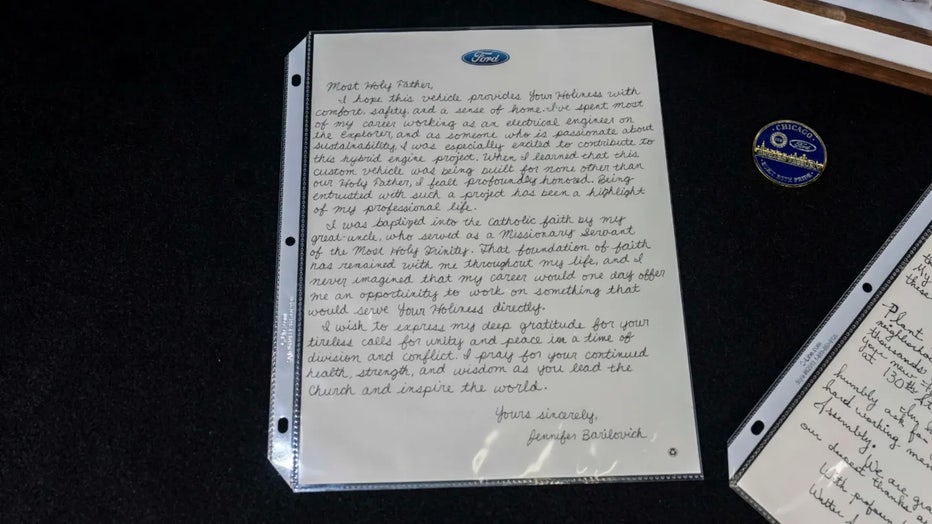 Ford
Most Holy Father,
I hope this vehicle provides Your Holiness with
comfort, safety, and a sense of home. I've spent most
of my career working as an electrical engineer on
the Explorer, and as someone who is passionate about
sustainability, I was especially excited to contribute to
this hybrid engine project. When I learned that this
custom vehicle was being built for none other than
our Holy Father, I fealt profoundly honored. Being
entrusted with such a project has been a highlight
of my professional life.
I was baptized into the Catholic faith by my
great-uncle, who served as a Missionary Servant
of the Most Holy Trinity. That foundation of faith
has remained with me throughout my life, and I
never imagined that my career would one day offer
me an opportunity to work on something that
would serve Your Holiness directly.
I wish to express my deep gratitude for your
tireless calls for unity and peace in a time of
division and conflict. I pray for your continued
health, strength, and wisdom as you lead the
Church and inspire the world.
Yours sincerely,
Jennifer Barilovich
CHICAGO
Ford
My
these
Plant
neighborhood
thousands
your new
at 130th
humbly ask for
hard working
Assembly.
We are
our dearest thanks
With
Walter